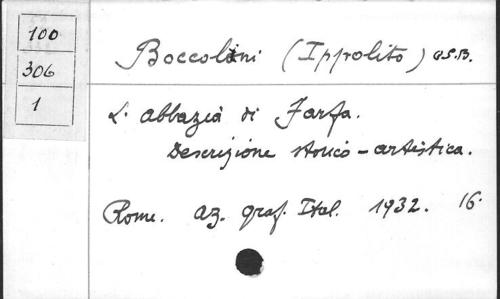 100
306
1
Boccolini (Ippolito) O.S.B.
L'abbazia di Farfa.
Descrizione storico-artistica.
Rome. az. graf. Ital. 1932. 16°